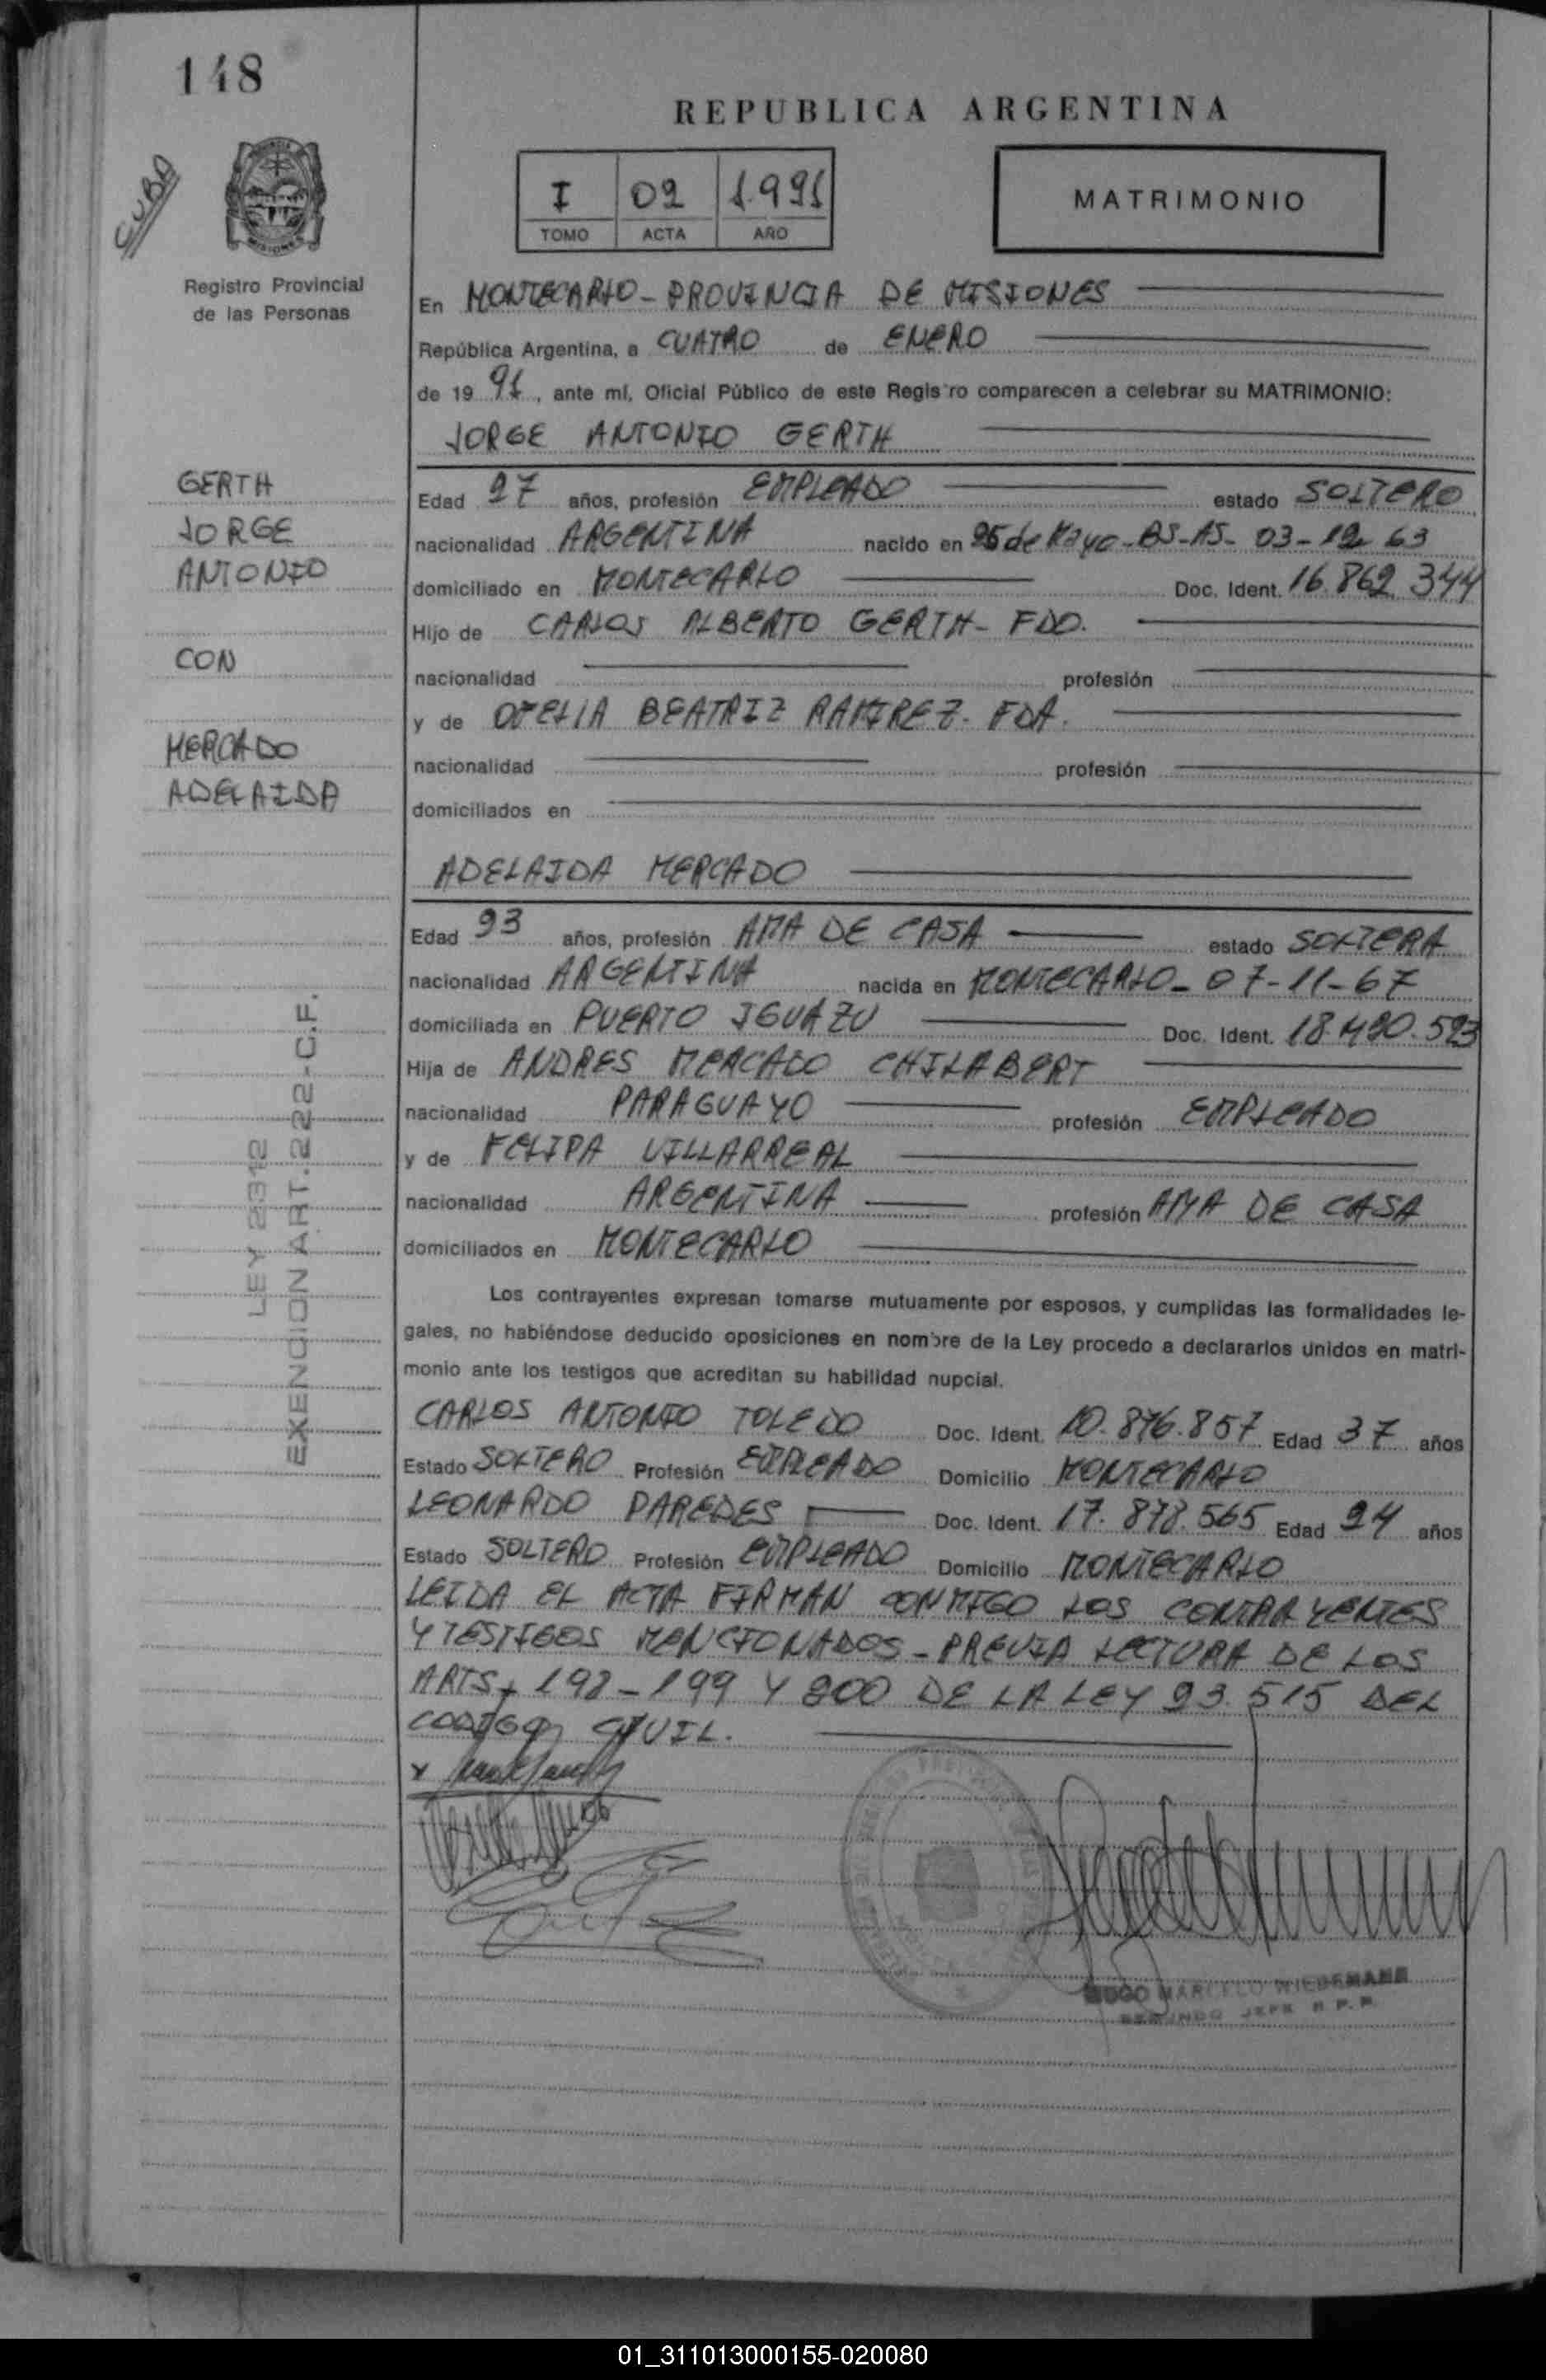 148
REPUBLICA ARGENTINA
CUBO
I 02 1.991
TOMO ACTA AÑO
MATRIMONIO
Registro Provincial
de las Personas
En MONTECARLO - PROVINCIA DE MISIONES
República Argentina, a CUATRO de ENERO
de 19 91, ante mí, Oficial Público de este Registro comparecen a celebrar su MATRIMONIO:
JORGE ANTONIO GERTH
GERTH
JORGE
ANTONIO
CON
MERCADO
ADELAIDA
Edad 27 años, profesión EMPLEADO estado SOLTERO
nacionalidad ARGENTINA nacido en 25 de Mayo - BS-AS- 03-12-63
domiciliado en MONTECARLO Doc. Ident. 16.862.344
Hijo de CARLOS ALBERTO GERTH - FDO.
nacionalidad profesión
y de OFELIA BEATRIZ RAMIREZ - FDA.
nacionalidad profesión
domiciliados en
ADELAIDA MERCADO
Edad 23 años, profesión AMA DE CASA estado SOLTERA
nacionalidad ARGENTINA nacida en MONTECARLO - 07-11-67
domiciliada en PUERTO IGUAZU Doc. Ident. 18.490.523
Hija de ANDRES MERCADO CHILABERT
nacionalidad PARAGUAYO profesión EMPLEADO
y de FELIPA VILLARREAL
nacionalidad ARGENTINA profesión AMA DE CASA
domiciliados en MONTECARLO
LEY 2312
EXENCION ART. 222-C.F.
Los contrayentes expresan tomarse mutuamente por esposos, y cumplidas las formalidades le-
gales, no habiéndose deducido oposiciones en nombre de la Ley procedo a declararlos unidos en matri-
monio ante los testigos que acreditan su habilidad nupcial.
CARLOS ANTONIO TOLEDO Doc. Ident. 10.876.857 Edad 37 años
Estado SOLTERO Profesión EMPLEADO Domicilio MONTECARLO
LEONARDO PAREDES Doc. Ident. 17.878.565 Edad 24 años
Estado SOLTERO Profesión EMPLEADO Domicilio MONTECARLO
LEIDA EL ACTA FIRMAN CONMIGO LOS CONTRAYENTES
Y TESTIGOS MENCIONADOS - PREVIA LECTURA DE LOS
ARTS. 198 - 199 Y 200 DE LA LEY 23.515 DEL
CODIGO CIVIL.
HUGO MARCELO WIEDEMANN
SEGUNDO JEFE R.P.P.
01_311013000155-020080